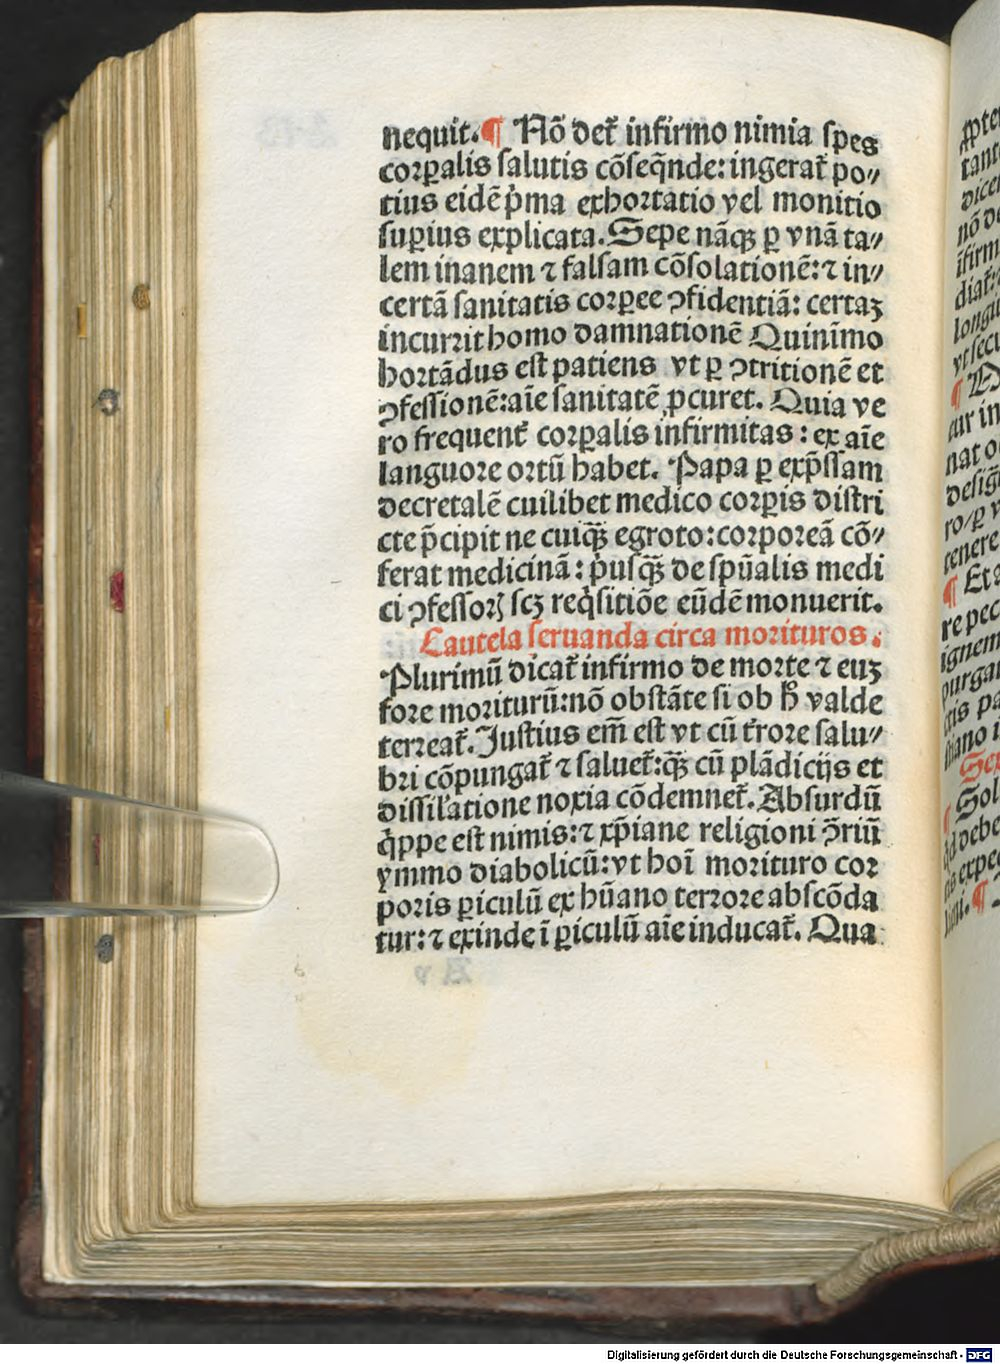 nequit.¶ Nõ det̃ infirmo nimia spes
coꝛꝑalis salutis cõseq̃nde: ingerat̃ po⸗
tius eidẽ pͥma exhoꝛtatio vel monitio
suꝑius explicata. Sepe nãqꝫ ꝑ vnã ta⸗
lem inanem ⁊ falsam cõsolationẽ: ⁊ in⸗
certã sanitatis coꝛꝑee ꝯfidentiã: certaꝫ
incurꝛit homo damnationẽ Quinĩmo
hoꝛtãdus est patiens vt ꝑ ꝯtritionẽ et
ꝯfessionẽ: aĩe sanitatẽ ꝓcuret. Quia ve
ro frequent̃ coꝛꝑalis infirmitas: ex aĩe
languoꝛe oꝛtũ habet. Papa ꝑ exp̃ssam
decretalẽ cuilibet medico coꝛꝑis distri
cte p̃cipit ne cuiqꝫ̃ egroto: coꝛpoꝛeã cõ⸗
ferat medicinã: pͥusqꝫ̃ de spũalis medi
ci ꝯfessoꝝ scꝫ reqͥsitiõe eũdẽ monuerit.
Cautela seruanda circa moꝛituros.
Plurimũ dicat̃ infirmo de moꝛte ⁊ euꝫ
foꝛe moꝛiturũ: nõ obstãte si ob h̃ valde
terꝛeat̃. Justius em̃ est vt cũ t̃roꝛe salu⸗
bri cõpungat̃ ⁊ saluet̃: qꝫ̃ cũ plãdicijs et
dissil̃atione noxia cõdemnet̃. Absurdũ
qͥppe est nimis: ⁊ xp̃iane religioni ꝯ̃riũ
ymmo diabolicũ: vt hoĩ moꝛituro coꝛ
poꝛis ꝑiculũ ex hũano terꝛoꝛe abscõda
tur: ⁊ exinde ĩ ꝑiculũ aĩe inducat̃. Qua
Digitalisierung gefördert durch die Deutsche Forschungsgemeinschaft - DFG